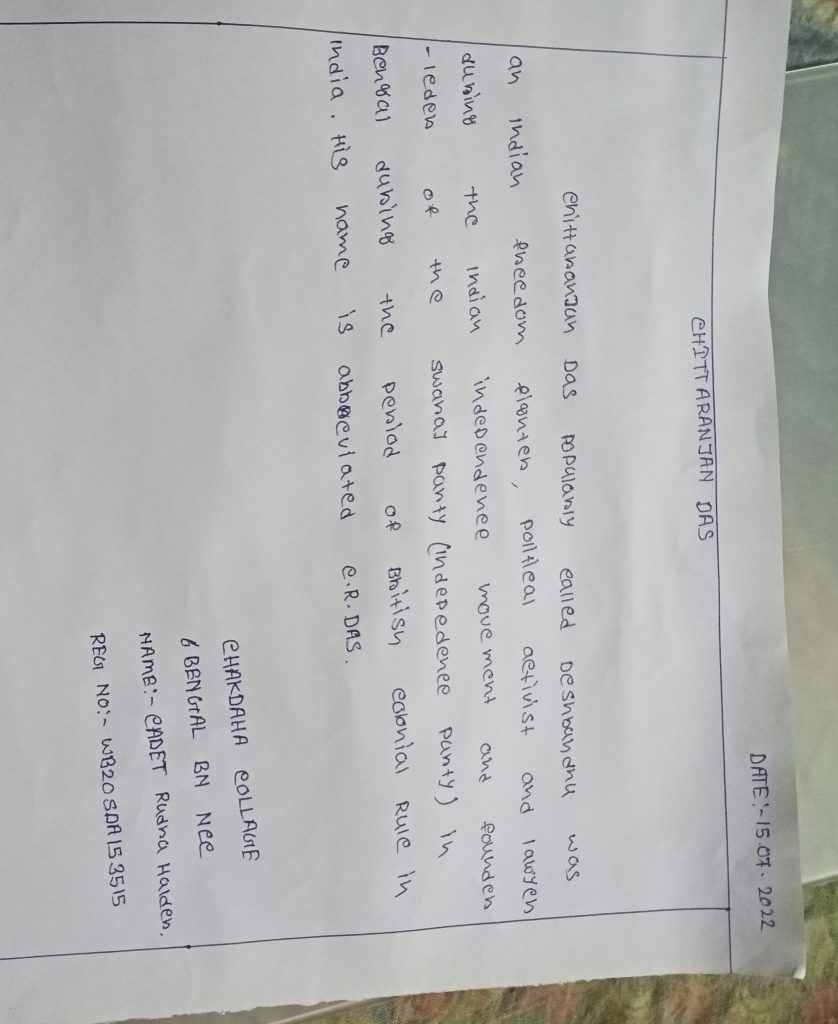 DATE:- 15.07.2022
CHITTARANJAN DAS
Chittaranjan Das popularly called Deshbandhu was
an Indian freedom fighter, political activist and lawyer
during the Indian independence movement and founder
-leder of the swaraj party (indepedence party) in
Bengal during the period of British colonial Rule in
India. His name is abbreviated C.R. DAS.
CHAKDAHA COLLAGE
6 BENGAL BN NCC
NAME:- CADET Rudra Halder.
REG NO:- WB20SDA153515